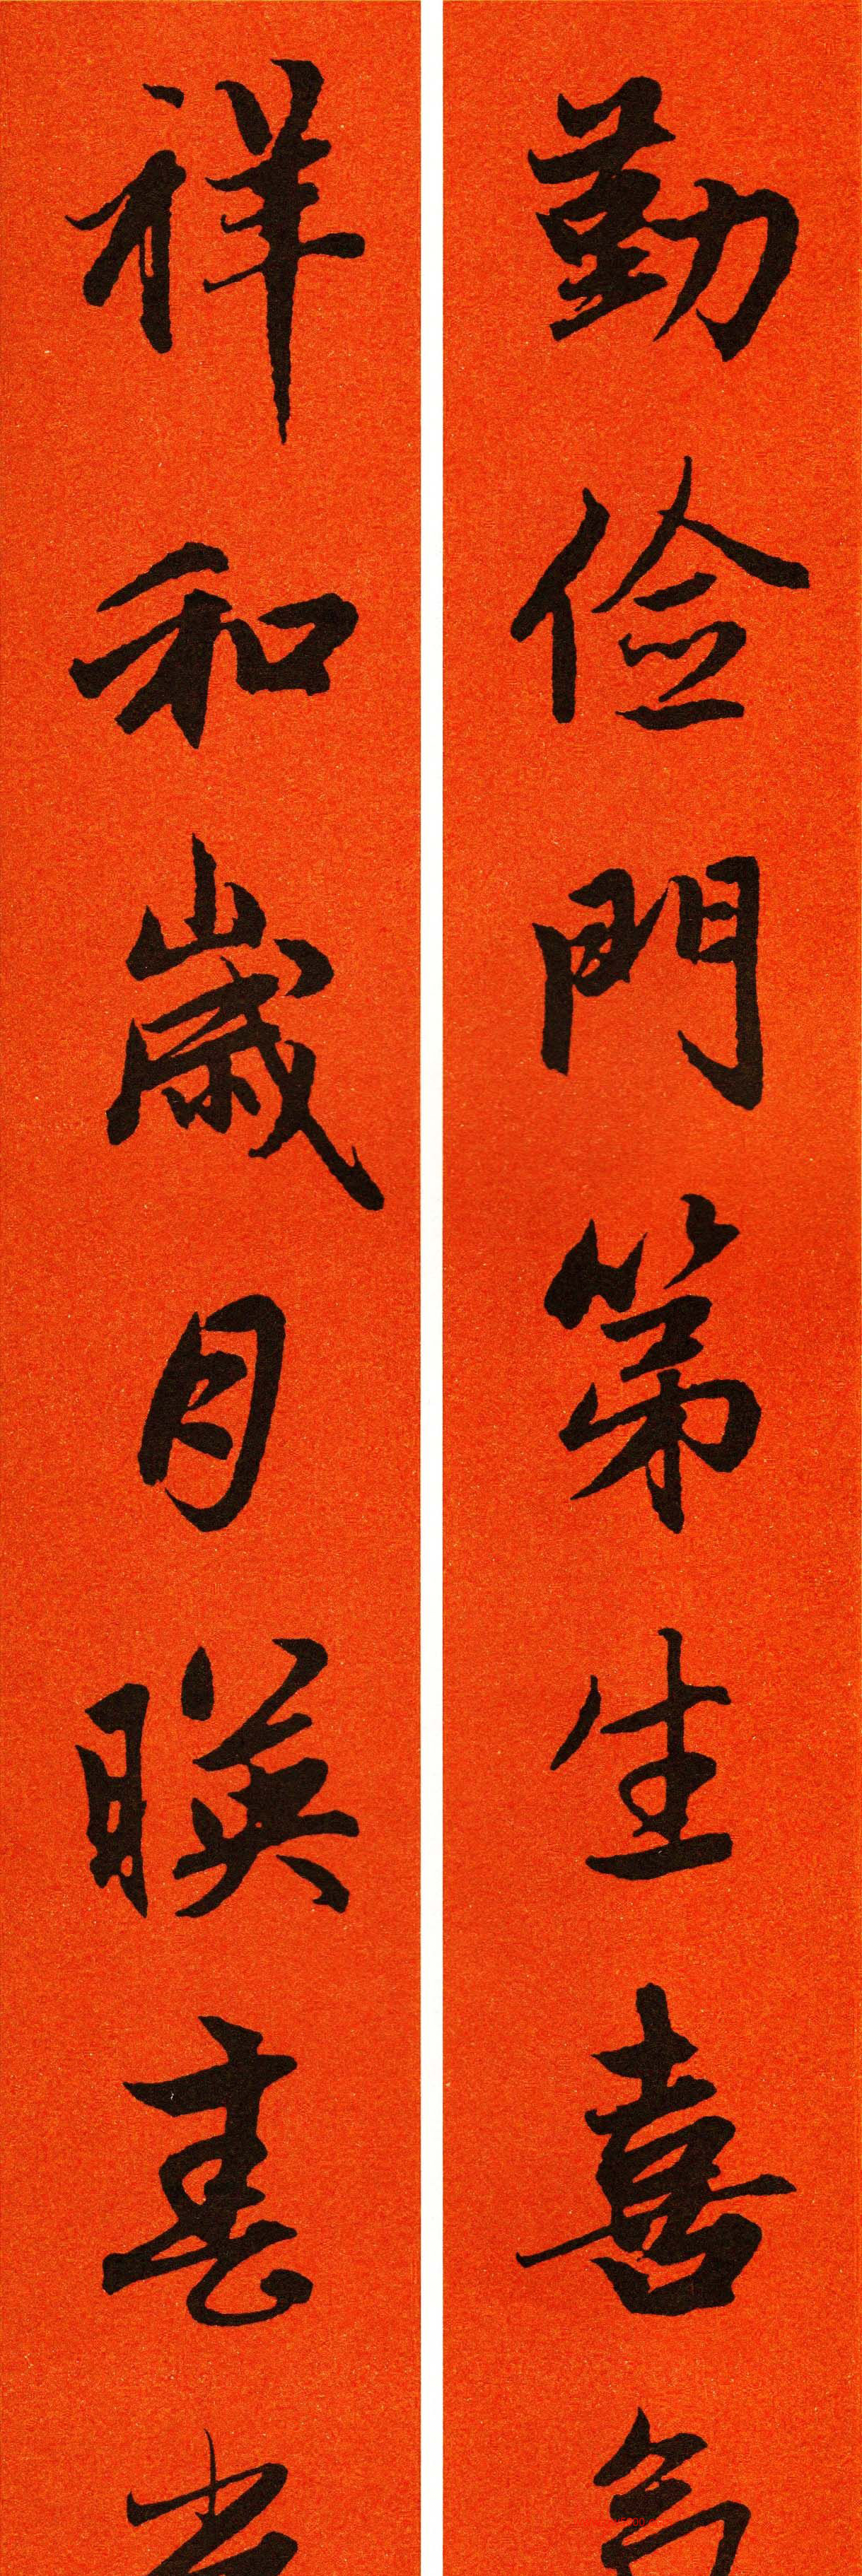 勤儉門第生喜
祥和歲月暎春